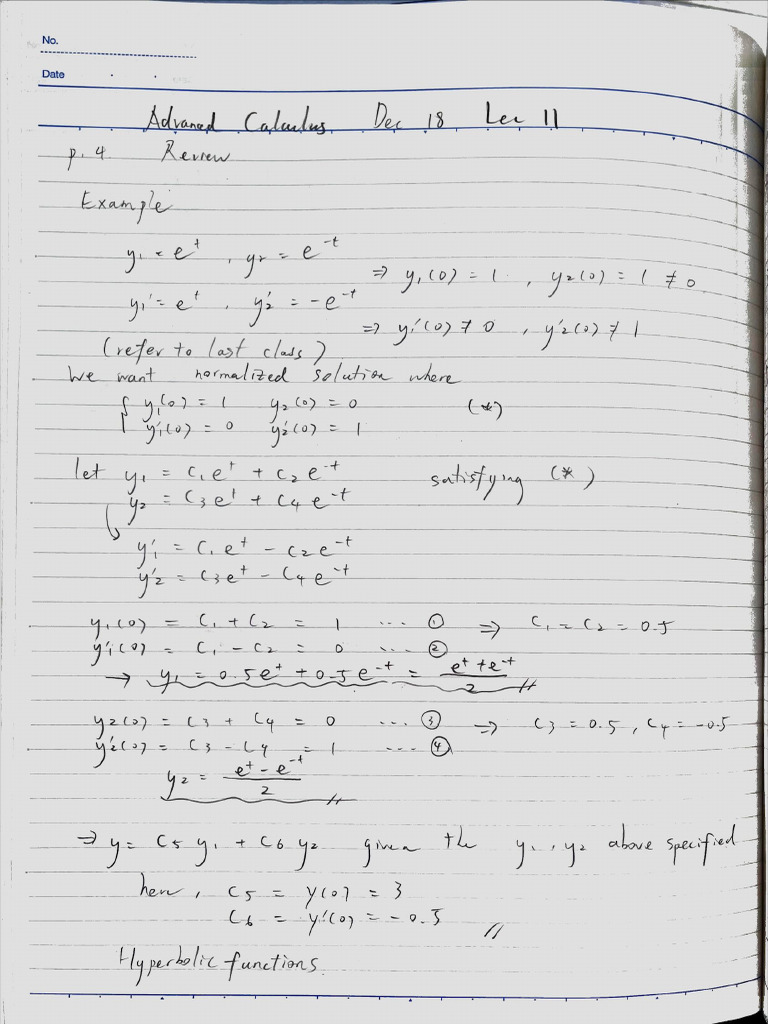 No.
Date
Advanced Calculus Dec 18 Lec 11
p. 4 Review
Example
y₁ = eᵗ , y₂ = e⁻ᵗ
⇒ y₁(0) = 1 , y₂(0) = 1 ≠ 0
y₁' = eᵗ , y₂' = -e⁻ᵗ
⇒ y₁'(0) ≠ 0 , y₂'(0) ≠ 1
(refer to last class)
We want normalized solution where
{ y₁(0) = 1 y₂(0) = 0 (*)
y₁'(0) = 0 y₂'(0) = 1
let y₁ = C₁eᵗ + C₂e⁻ᵗ satisfying (*)
y₂ = C₃eᵗ + C₄e⁻ᵗ
y₁' = C₁eᵗ - C₂e⁻ᵗ
y₂' = C₃eᵗ - C₄e⁻ᵗ
y₁(0) = C₁ + C₂ = 1 ... ① ⇒ C₁ = C₂ = 0.5
y₁'(0) = C₁ - C₂ = 0 ... ②
→ y₁ = 0.5eᵗ + 0.5e⁻ᵗ = (eᵗ + e⁻ᵗ)/2 //
y₂(0) = C₃ + C₄ = 0 ... ③ ⇒ C₃ = 0.5 , C₄ = -0.5
y₂'(0) = C₃ - C₄ = 1 ... ④
y₂ = (eᵗ - e⁻ᵗ)/2 //
⇒ y = C₅ y₁ + C₆ y₂ given the y₁, y₂ above specified
here, C₅ = y(0) = 3
C₆ = y'(0) = -0.5 //
Hyperbolic functions.